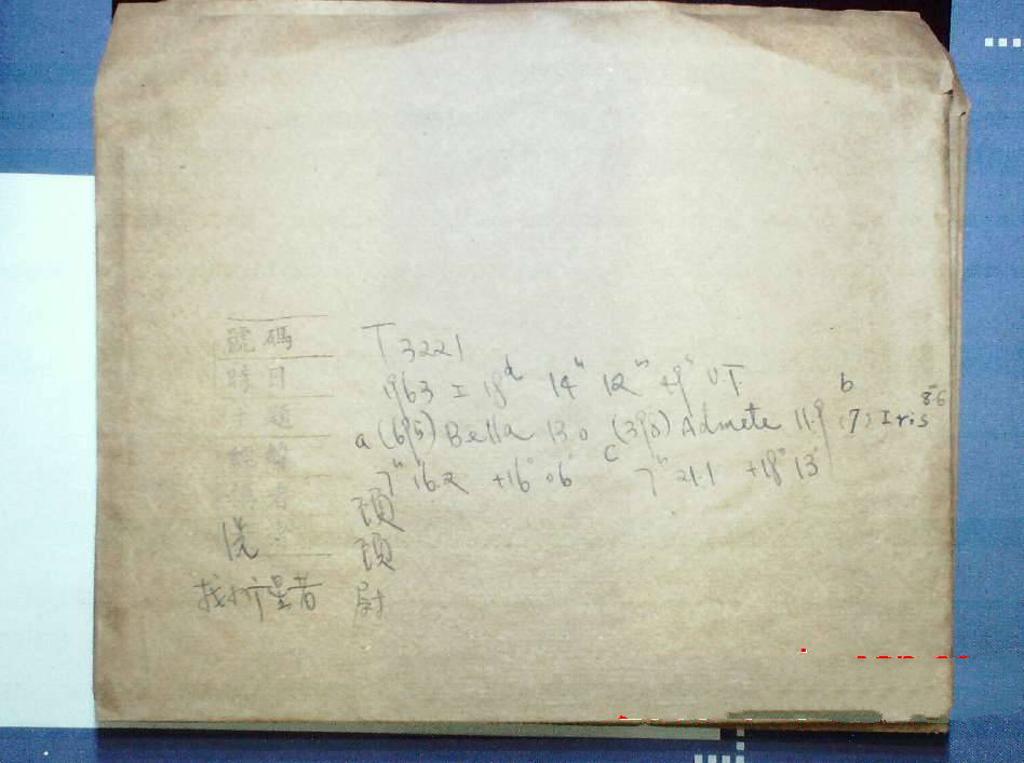 號碼 T 3221
時日 1963 I 18ᵈ 14ʰ 12ᵐ 49ˢ U.T.
題 a (695) Bella 13.0 (398) Admete 11.9 b (7) Iris 8.6
7ʰ 16.2 +16° 06' c 7ʰ 21.1 +18° 13'
者 頊
洗 頊
找小行星者 尉